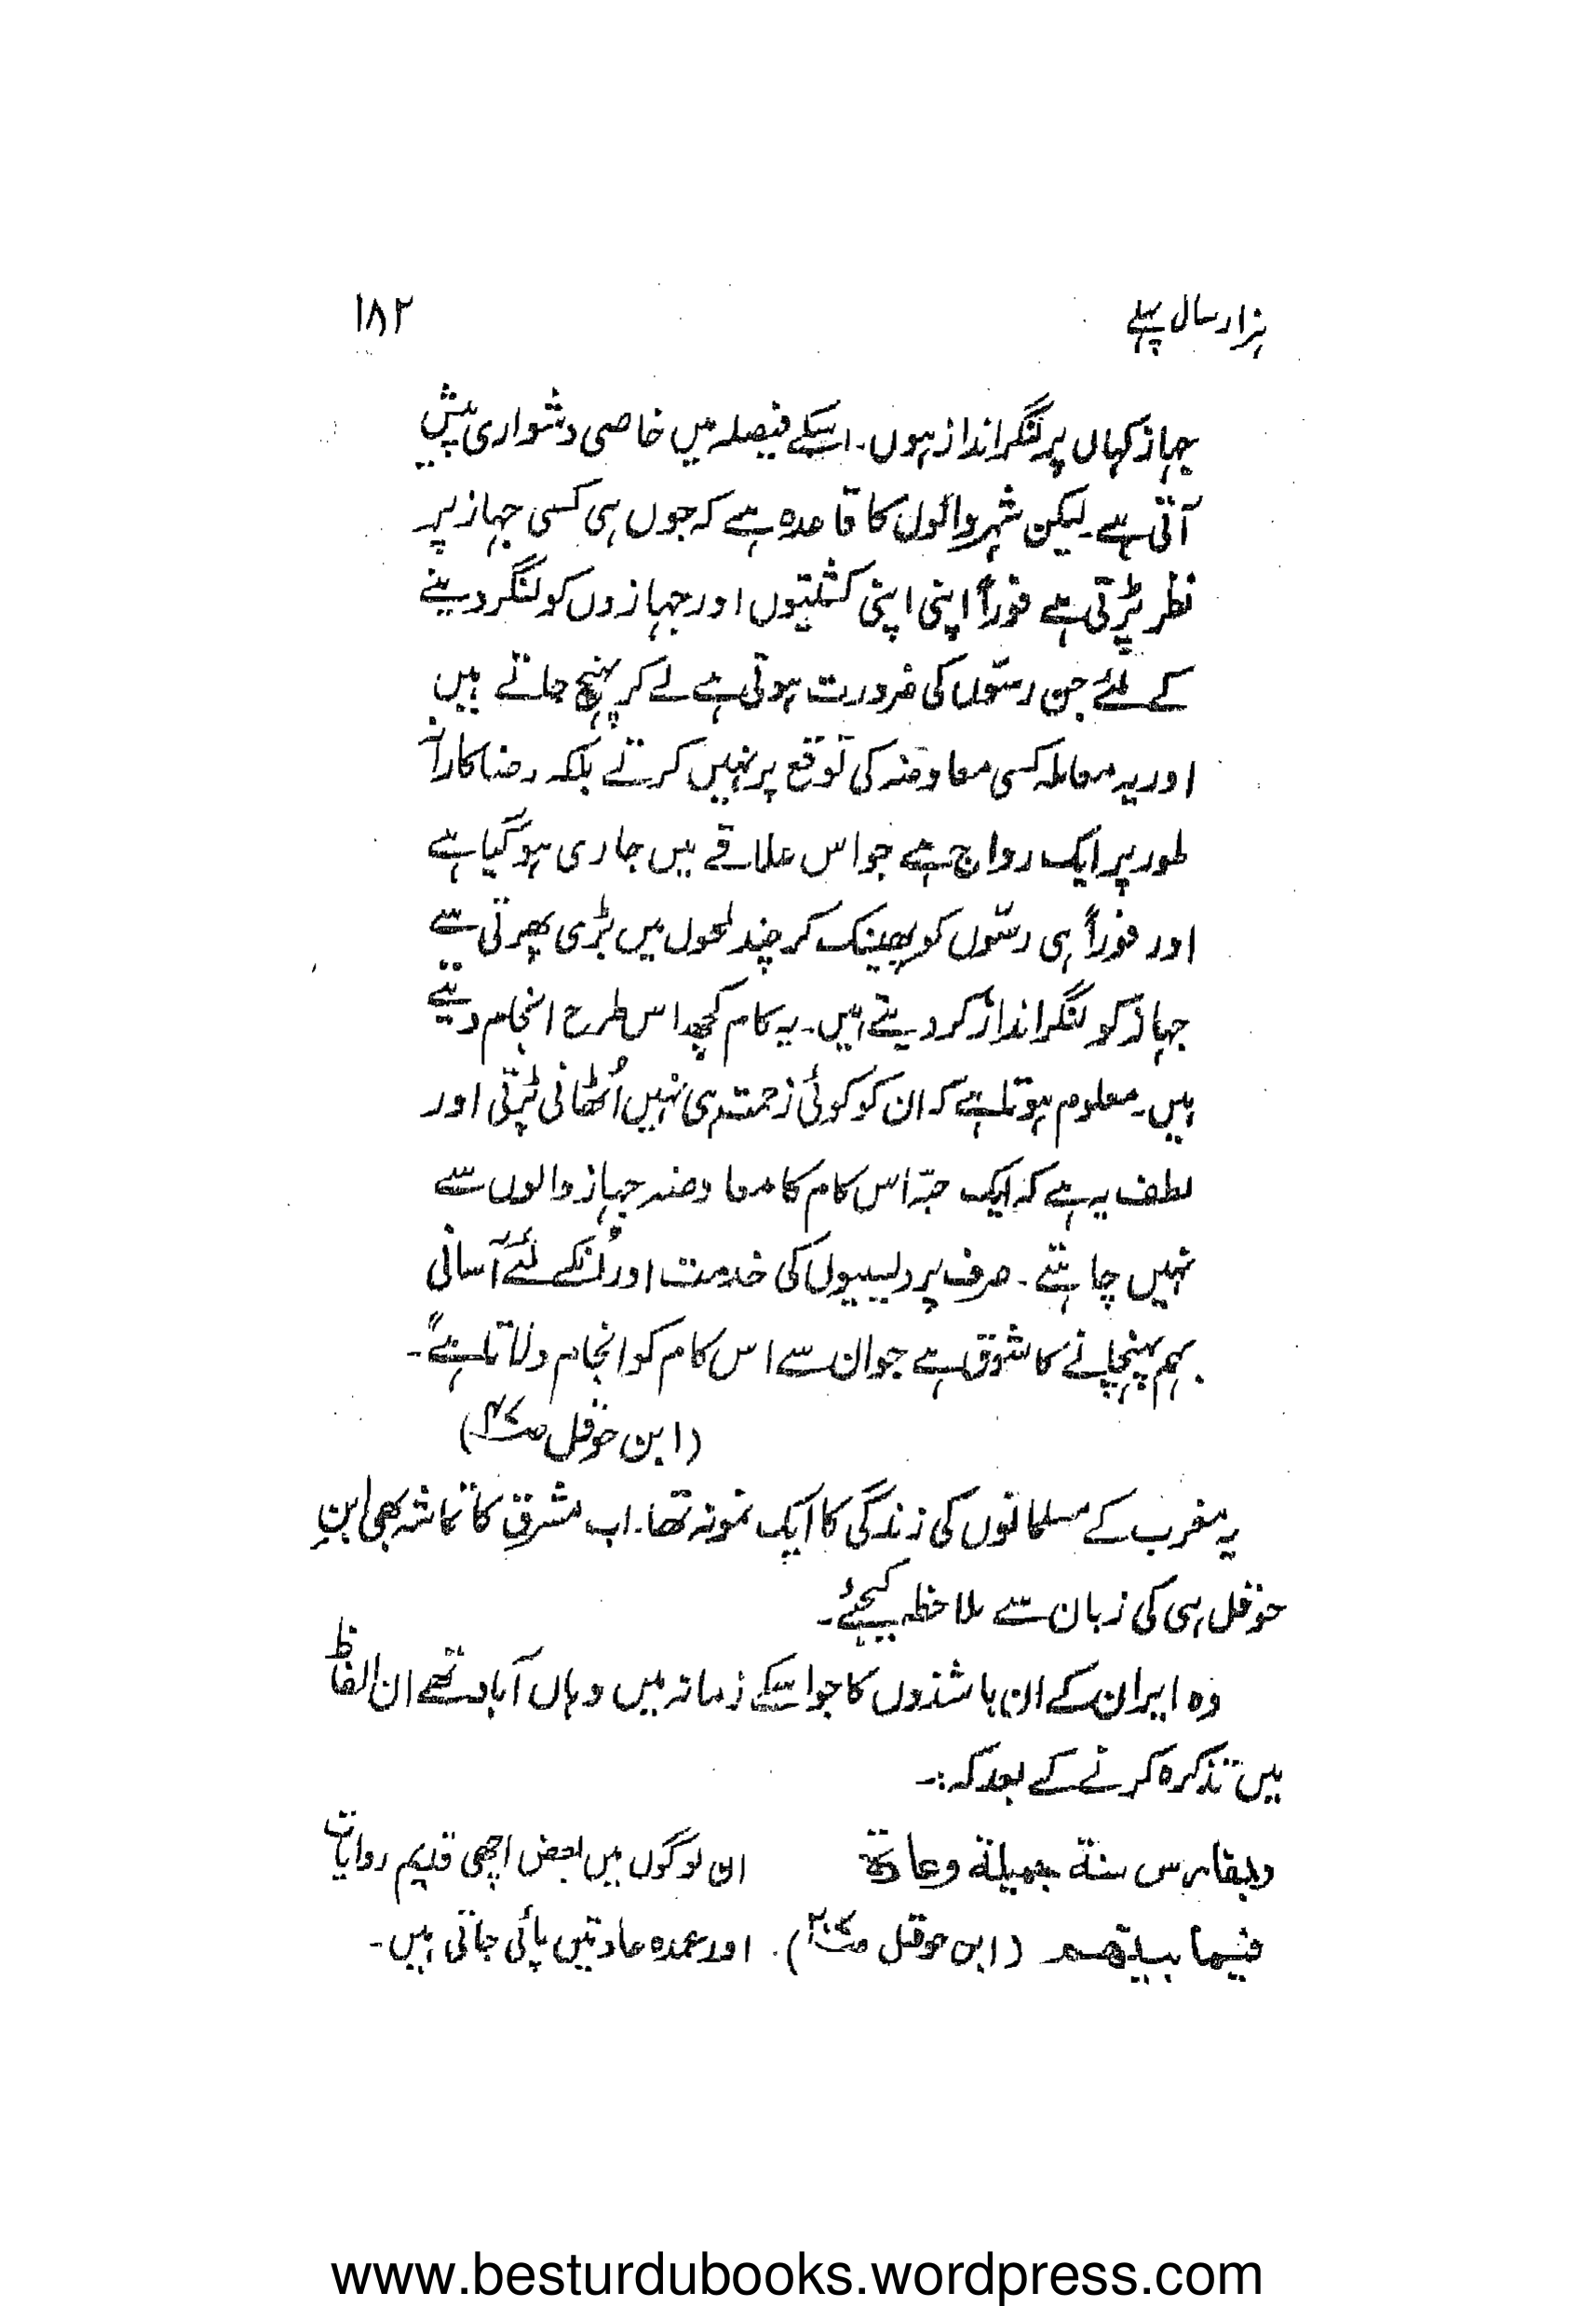 ہزار سال پہلے ۱۸۲
جہاز کہاں پر لنگر انداز ہوں۔ اسکے فیصلہ میں خاصی دشواری پیش
آتی ہے۔ لیکن شہر والوں کا قاعدہ ہے کہ جوں ہی کسی جہاز پر
نظر پڑتی ہے فوراً اپنی اپنی کشتیوں اور جہازوں کو لنگر دینے
کے لئے جن رسّوں کی ضرورت ہوتی ہے لے کر پہنچ جاتے ہیں
اور یہ معاملہ کسی معاوضہ کی توقع پر نہیں کرتے بلکہ رضاکارانہ
طور پر ایک رواج ہے جو اس علاقے میں جاری ہو گیا ہے
اور فوراً ہی رسّوں کو پھینک کر چند لمحوں میں بڑی پھرتی سے
جہاز کو لنگر انداز کر دیتے ہیں۔ یہ کام کچھ اس طرح انجام دیتے
ہیں۔ معلوم ہوتا ہے کہ ان کو کوئی زحمت ہی نہیں اُٹھانی پڑتی اور
لطف یہ ہے کہ ایک حبّہ اس کام کا معاوضہ جہاز والوں سے
نہیں چاہتے۔ صرف پردیسیوں کی خدمت اور اُنکے لئے آسانی
بہم پہنچانے کا شوق ہے جو ان سے اس کام کو انجام دلاتا ہے"۔
(ابن حوقل ص)
یہ مغرب کے مسلمانوں کی زندگی کا ایک نمونہ تھا۔ اب مشرق کا تماشہ بھی ابنِ
حوقل ہی کی زبان سے ملاحظہ کیجئے۔
وہ ایران کے ان باشندوں کا جو اسکے زمانہ میں وہاں آباد تھے ان الفاظ
میں تذکرہ کرنے کے بعد کہ:۔
وبفارس سنة جميلة وعادة ان لوگوں میں بعض اچھی قدیم روایات
فيما بينهم (ابن حوقل ص). اور عمدہ عادتیں پائی جاتی ہیں۔
www.besturdubooks.wordpress.com